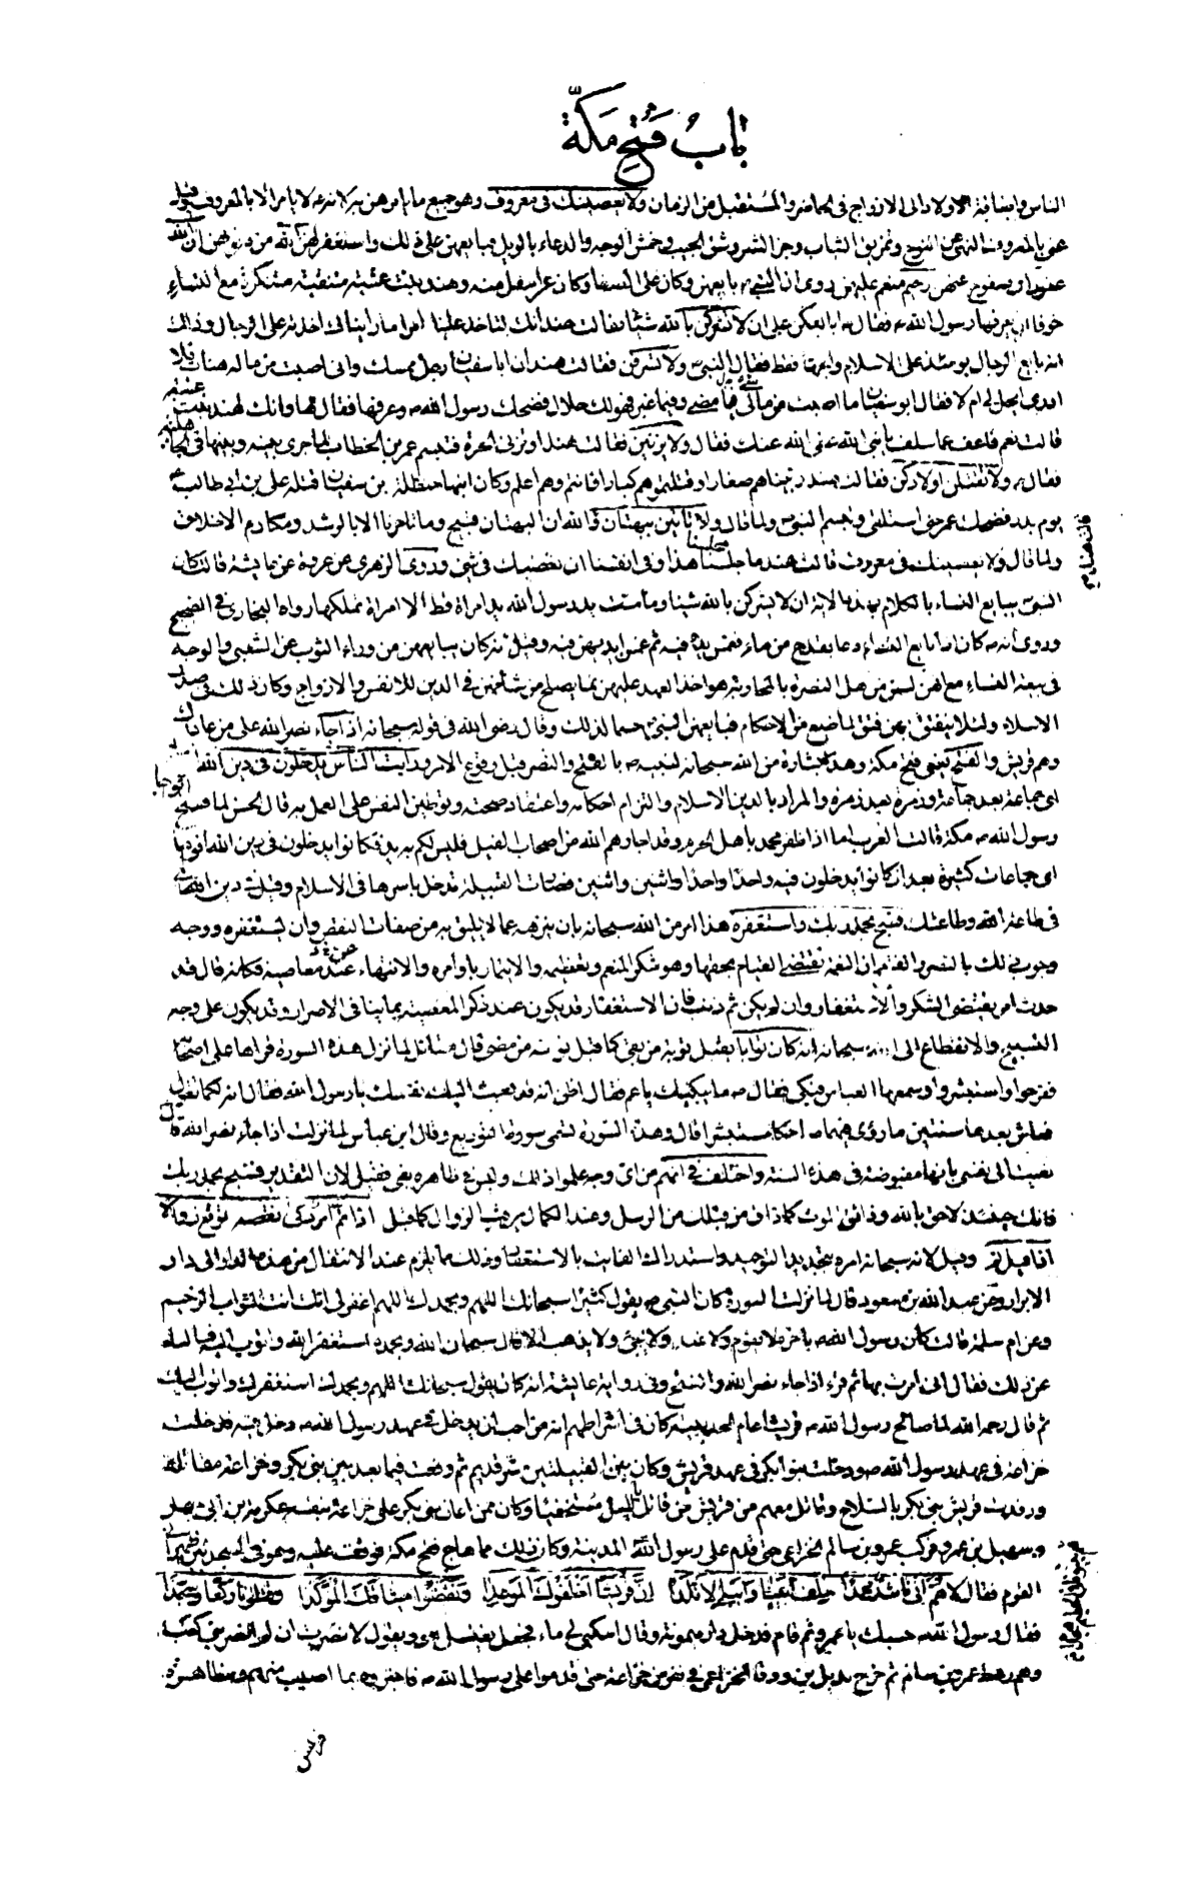 باب فتح مكة
الناس واضافة الاولاد الى الازواج فى الحاضر والمستقبل من الزمان ولا يعصينك فى معروف وهو جميع ما يامرهن به لانه لا يامر الا بالمعروف وقيل
عنى بالمعروف النهى عن النوح وتمزيق الثياب وجز الشعر وشق الجيب وخمش الوجه والدعاء بالويل فبايعهن على ذلك واستغفر لهن الله من ذنوبهن ان الله
غفور اى صفوح عنهن رحيم منعم عليهن وروى ان النبى ص بايعهن وكان على الصفا وكان عمر اسفل منه وهند بنت عتبة متنقبة متنكرة مع النساء
خوفا ان يعرفها رسول الله ص فقال ص ابايعكن على ان لا تشركن بالله شيئا فقالت هند انك لتاخذ علينا امرا ما رايناك اخذته على الرجال وذلك
انه بايع الرجال يومئذ على الاسلام والجهاد فقط فقال النبى ص ولا تسرقن فقالت هند ان ابا سفيان رجل ممسك وانى اصبت من ماله هنات فلا
ادرى ايحل لى ام لا فقال ابو سفيان ما اصبت من مالى فيما مضى وفيما غبر فهو لك حلال فضحك رسول الله ص وعرفها فقال لها وانك لهند بنت عتبة
قالت نعم فاعف عما سلف يا نبى الله عفى الله عنك فقال ولا يزنين فقالت هند اوتزنى الحرة فتبسم عمر بن الخطاب لما جرى بينه وبينها فى الجاهلية
فقال ص ولا تقتلن اولادكن فقالت هند ربيناهم صغارا وقتلتموهم كبارا فانتم وهم اعلم وكان ابنها حنظلة بن سفيان قتله على بن ابى طالب ع
يوم بدر فضحك عمر حتى استلقى وتبسم النبى ص ولما قال ولا ياتين ببهتان قالت هند والله ان البهتان قبيح وما تامرنا الا بالرشد ومكارم الاخلاق
ولما قال ولا يعصينك فى معروف قالت هند ما جلسنا مجلسنا هذا وفى انفسنا ان نعصيك فى شئ وروى الزهرى عن عروة عن عايشة قالت كان
النبى ص يبايع النساء بالكلام بهذه الاية ان لا يشركن بالله شيئا وما مست يد رسول الله يد امراة قط الا امراة يملكها رواه البخارى فى الصحيح
وروى انه ص كان اذا بايع النساء دعا بقدح من ماء فغمس يده فيه ثم غمسن ايديهن فيه وقيل انه كان يبايعهن من وراء الثوب عن الشعبى والوجه
فى بيعة النساء مع انهن لسن من اهل النصرة بالمحاربة هو اخذ العهد عليهن بما يصلح من شأنهن فى الدين للانفس والازواج وكان ذلك فى صدر
الاسلام ولئلا ينفتق بهن فتق لما ضيع من الاحكام فبايعهن النبى ص حسما لذلك وقال رضى الله فى قوله سبحانه اذا جاء نصر الله على من عاداك
وهم قريش والفتح يعنى فتح مكة وهذه بشارة من الله سبحانه لنبيه ص بالفتح والنصر قبل وقوع الامر ورايت الناس يدخلون فى دين الله افواجا
اى جماعة بعد جماعة وزمرة بعد زمرة والمراد بالدين الاسلام والتزام احكامه واعتقاد صحته وتوطين النفس على العمل به قال الحسن لما فتح
رسول الله ص مكة قالت العرب اما اذا ظفر محمد باهل الحرم وقد اجارهم الله من اصحاب الفيل فليس لكم به يد فكانوا يدخلون فى دين الله افواجا
اى جماعات كثيرة بعد ان كانوا يدخلون فيه واحدا واحدا واثنين واثنين فصارت القبيلة تدخل باسرها فى الاسلام وقيل فى دين الله اى
فى طاعة الله وطاعتك فسبح بحمد ربك واستغفره هذا امر من الله سبحانه بان ينزهه عما لا يليق به من صفات النقص وان يستغفره ووجه
وجوب ذلك بالنصر والفتح ان النعمة تقتضى القيام بحقها وهو شكر المنعم وتعظيمه والايتمار باوامره والانتهاء عن معاصيه فكانه قال قد
حدث امر يقتضى الشكر والاستغفار وان لم يكن ثم ذنب فان الاستغفار قد يكون عند ذكر المعصية بما ينافى الاصرار وقد يكون على وجه
التسبيح والانقطاع الى الله سبحانه انه كان توابا يقبل توبة من بقى كما قبل توبة من مضى قال مقاتل لما نزل هذه السورة قراها على اصحابه
ففرحوا واستبشروا وسمعها العباس فبكى فقال ص ما يبكيك يا عم فقال اظن انه قد نعيت اليك نفسك يا رسول الله فقال انه لكما تقول
فعاش بعدها سنتين ما رؤى فيهما ضاحكا مستبشرا قال وهذه السورة تسمى سورة التوديع وقال ابن عباس لما نزلت اذا جاء نصر الله قال
نعيت الى نفسى بانها مقبوضة فى هذه السنة واختلف فى انهم من اى وجه علموا ذلك وليس فى ظاهره نعى فقيل لان التقدير فسبح بحمد ربك
فانك حينئذ لاحق بالله وذائق الموت كما ذاق من قبلك من الرسل وعند الكمال يرقب الزوال كما قيل اذا تم امر بدى نقصه توقع زوالا
اذا قيل تم وقيل لانه سبحانه امره بتجديد التوحيد واستدراك الفايت بالاستغفار وذلك مما يلزم عند الانتقال من هذه الدار الى دار
الابرار وعن عبد الله بن مسعود قال لما نزلت السورة كان النبى ص يقول كثيرا سبحانك اللهم وبحمدك اللهم اغفر لى انك انت التواب الرحيم
وعن ام سلمة قالت كان رسول الله ص باخره لا يقوم ولا يقعد ولا يجئ ولا يذهب الا قال سبحان الله وبحمده استغفر الله واتوب اليه فسالناه
عن ذلك فقال انى امرت بها ثم قرء اذا جاء نصر الله والفتح وفى رواية عائشة انه كان يقول سبحانك اللهم وبحمدك استغفرك واتوب اليك
ثم قال رحمه الله لما صالح رسول الله ص قريشا عام الحديبية كان فى اشراطهم انه من احب ان يدخل فى عهد رسول الله ص دخل فيه فدخلت
خزاعة فى عهد رسول الله ص ودخلت بنو بكر فى عهد قريش وكان بين القبيلتين شر قديم ثم وقعت فيما بعد بين بنى بكر وخزاعة مقاتلة
ورفدت قريش بنى بكر بالسلاح وقاتل معهم من قريش من قاتل بالليل مستخفيا وكان ممن اعان بنى بكر على خزاعة بنفسه عكرمة بن ابى جهل
وسهيل بن عمرو فركب عمرو بن سالم الخزاعى حتى قدم على رسول الله المدينة وكان ذلك مما هاج فتح مكة فوقف عليه وهو فى المسجد بين ظهرانى
القوم فقال لاهم انى ناشد محمدا حلف ابينا وابيه الاتلدا ان قريشا اخلفوك الموعدا ونقضوا ميثاقك المؤكدا وقتلونا ركعا وسجدا
فقال رسول الله ص حسبك يا عمرو ثم قام فدخل دار ميمونة وقال اسكبى لى ماء فجعل يغتسل وهو يقول لا نصرت ان لم انصر بنى كعب
وهم رهط عمرو بن سالم ثم خرج بديل بن ورقا الخزاعى فى نفر من خزاعة حتى قدموا على رسول الله ص فاخبروه بما اصيب منهم ومظاهرة
قريش